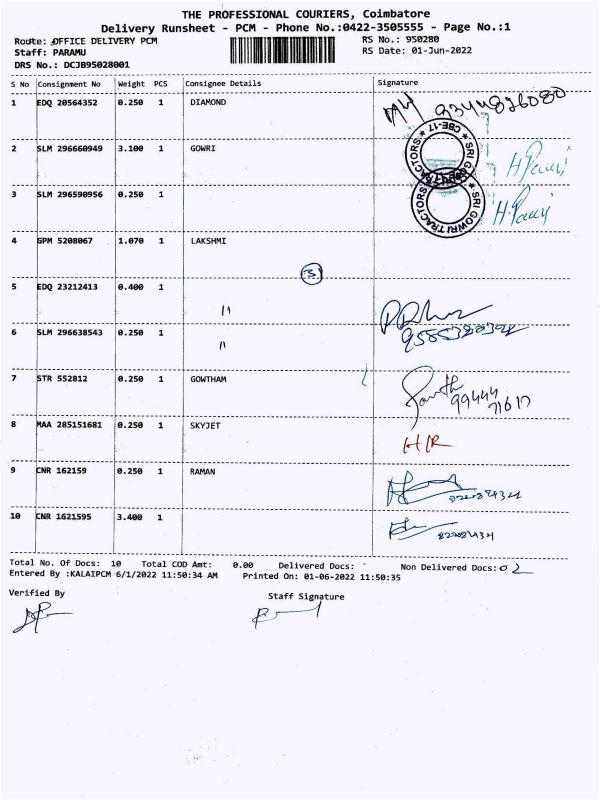 THE PROFESSIONAL COURIERS, Coimbatore
Delivery Runsheet - PCM - Phone No.:0422-3505555 - Page No.:1
Route: OFFICE DELIVERY PCM RS No.: 950280
Staff: PARAMU RS Date: 01-Jun-2022
DRS No.: DCJB95028001
S No Consignment No Weight PCS Consignee Details Signature
1 EDQ 20564352 0.250 1 DIAMOND 9344826080
CBE-17
SRI GOWRI TRACTORS
2 SLM 296660949 3.100 1 GOWRI
3 SLM 296590956 0.250 1
SRI GOWRI TRACTORS
4 GPM 5208067 1.070 1 LAKSHMI
3
5 EDQ 23212413 0.400 1 "
6 SLM 296638543 0.250 1 "
7 STR 552812 0.250 1 GOWTHAM
99444
71617
8 MAA 285151681 0.250 1 SKYJET HR
9 CNR 162159 0.250 1 RAMAN
10 CNR 1621595 3.400 1
Total No. Of Docs: 10 Total COD Amt: 0.00 Delivered Docs: Non Delivered Docs: 02
Entered By :KALAIPCM 6/1/2022 11:50:34 AM Printed On: 01-06-2022 11:50:35
Verified By Staff Signature